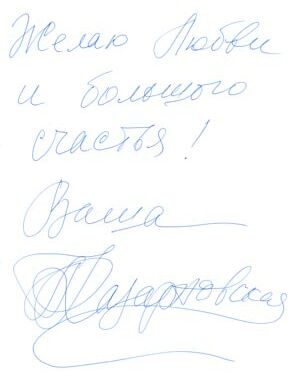 Желаю Любви
и большого
счастья!
Ваша